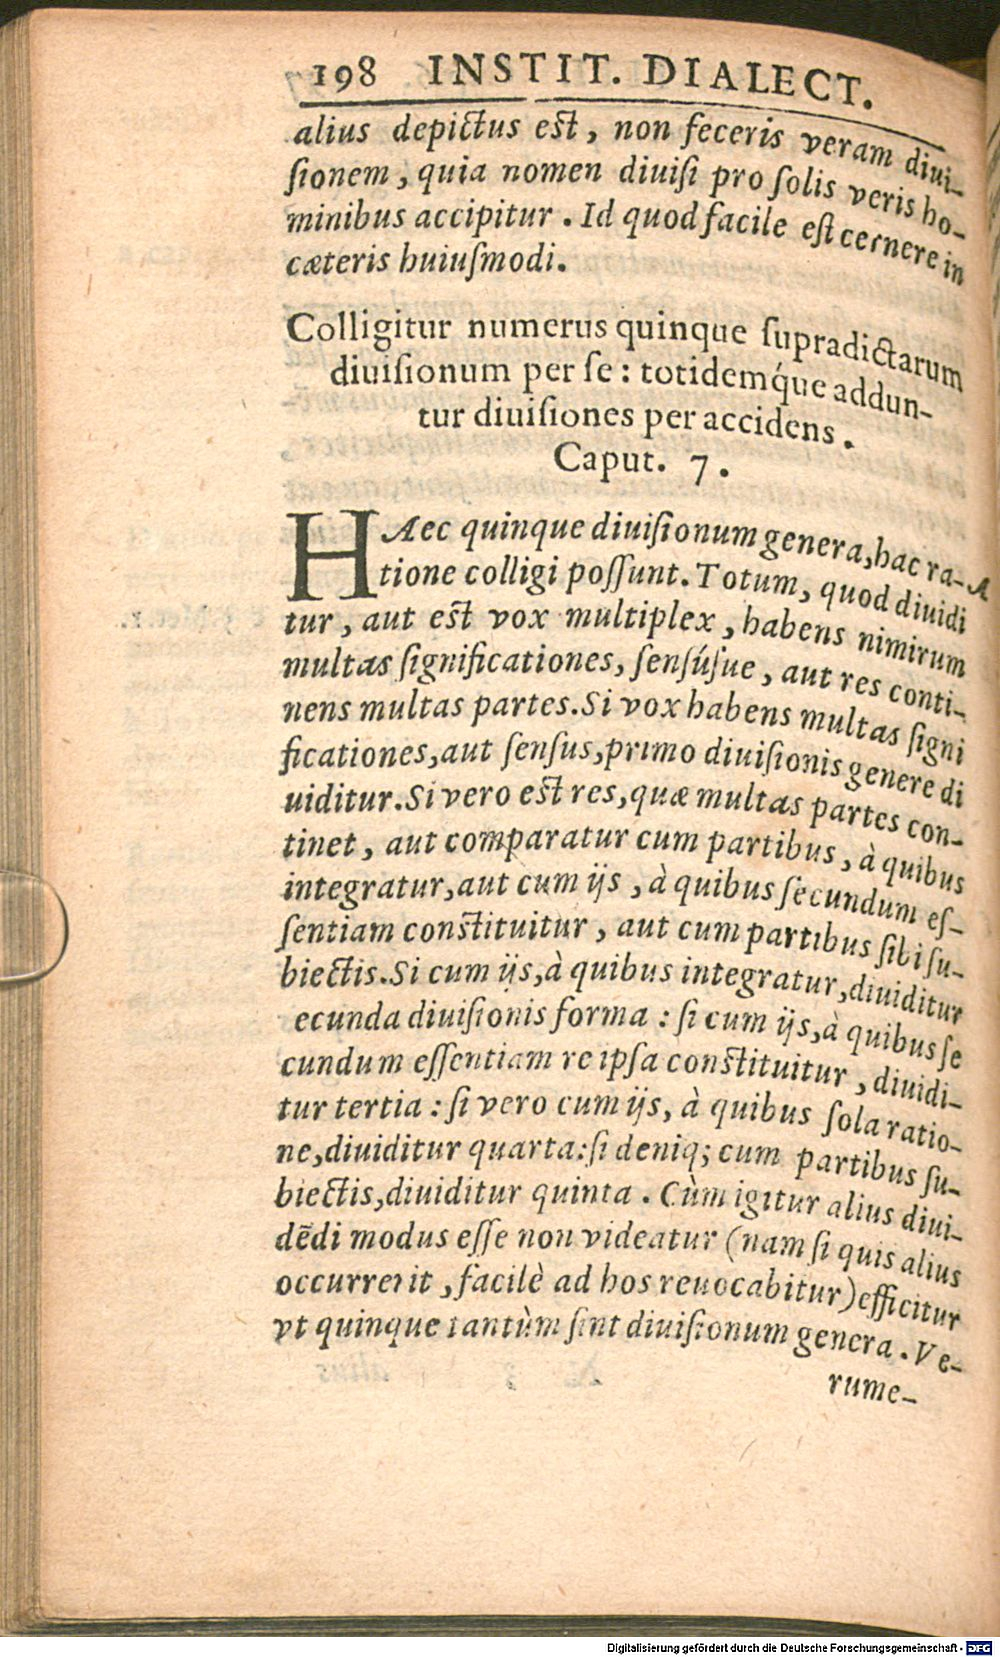 198 INSTIT. DIALECT.
alius depictus est, non feceris veram diui-
sionem, quia nomen diuisi pro solis veris ho-
minibus accipitur. Id quod facile est cernere in
cæteris huiusmodi.
Colligitur numerus quinque supradictarum
diuisionum per se: totidemq́ue addun-
tur diuisiones per accidens.
Caput. 7.
HAec quinque diuisionum genera, hac ra- A
tione colligi possunt. Totum, quod diuidi
tur, aut est vox multiplex, habens nimirum
multas significationes, sensúsue, aut res conti-
nens multas partes. Si vox habens multas signi
ficationes, aut sensus, primo diuisionis genere di
uiditur. Si vero est res, quæ multas partes con-
tinet, aut comparatur cum partibus, à quibus
integratur, aut cum ijs, à quibus secundum es-
sentiam constituitur, aut cum partibus sibi su-
biectis. Si cum ijs, à quibus integratur, diuiditur
ecunda diuisionis forma: si cum ijs, à quibus se
cundum essentiam re ipsa constituitur, diuidi-
tur tertia: si vero cum ijs, à quibus sola ratio-
ne, diuiditur quarta: si deniq; cum partibus su-
biectis, diuiditur quinta. Cùm igitur alius diui-
dẽdi modus esse non videatur (nam si quis alius
occurrerit, facilè ad hos reuocabitur) efficitur
vt quinque tantùm sint diuisionum genera. Ve-
rume-
Digitalisierung gefördert durch die Deutsche Forschungsgemeinschaft - DFG